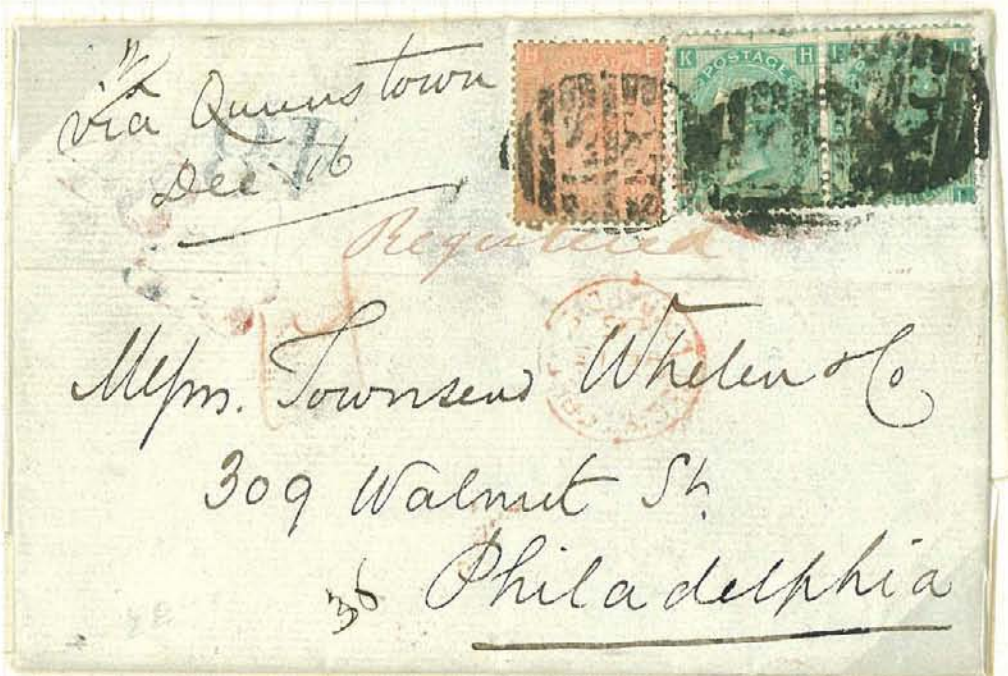 via Queenstown
Dec 16
H E
K POSTAGE H
H
L
Registered
Messrs. Townsend Whelen & Co
309 Walnut St.
36 Philadelphia